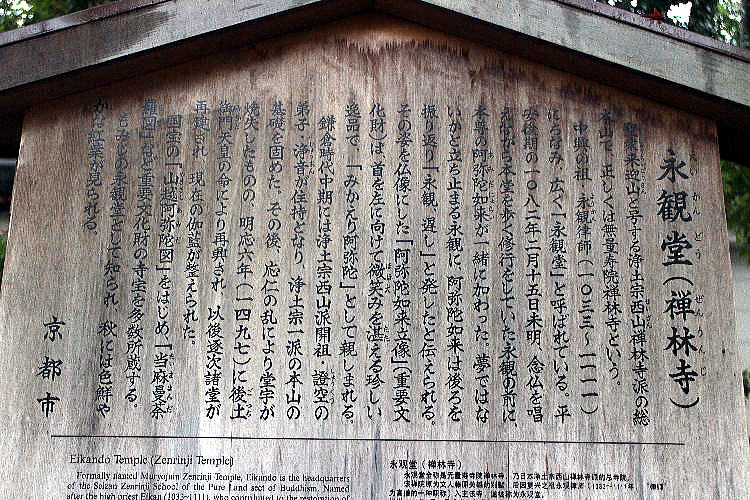 永観堂(禅林寺)
聖衆来迎山と号する浄土宗西山禅林寺派の総
本山で、正しくは無量寿院禅林寺という。
中興の祖・永観律師(一〇三三~一一一一)
にちなみ、広く「永観堂」と呼ばれている。平
安後期の一〇八二年二月十五日未明、念仏を唱
えながら本堂を歩く修行をしていた永観の前に
本尊の阿弥陀如来が一緒に加わった。夢ではな
いかと立ち止まる永観に、阿弥陀如来は後ろを
振り返り「永観、遅し」と発したと伝えられる。
その姿を仏像にした「阿弥陀如来立像」(重要文
化財)は、首を左に向けて微笑みを湛える珍しい
逸品で、「みかえり阿弥陀」として親しまれる。
鎌倉時代中期には浄土宗西山派開祖 證空の
弟子・浄音が住持となり、浄土宗一派の本山の
基礎を固めた。その後、応仁の乱により堂宇が
焼失したものの、明応六年(一四九七)に後土
御門天皇の命により再興され、以後逐次諸堂が
再建され、現在の伽藍が整えられた。
国宝の「山越阿弥陀図」をはじめ「当麻曼荼
羅図」など重要文化財の寺宝を多数所蔵する。
もみじの永観堂として知られ、秋には色鮮や
かな紅葉が見られる。
京都市
Eikando Temple (Zenrinji Temple)
Formally named Muryojuin Zenrinji Temple, Eikando is the headquarters
of the Seizan Zenrinji School of the Pure Land sect of Buddhism. Named
after the high priest Eikan (1033~1111), who contributed to the restoration of
永观堂（禅林寺）